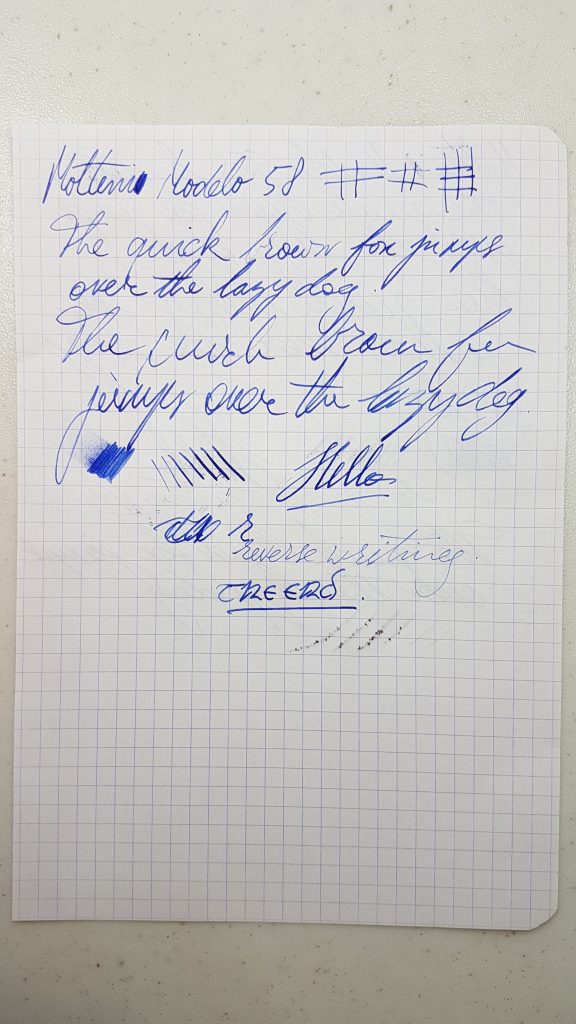 Modelo 58
The quick brown fox jumps
over the lazy dog.
The quick brown fox
jumps over the lazy dog.
Hello
reverse writing.